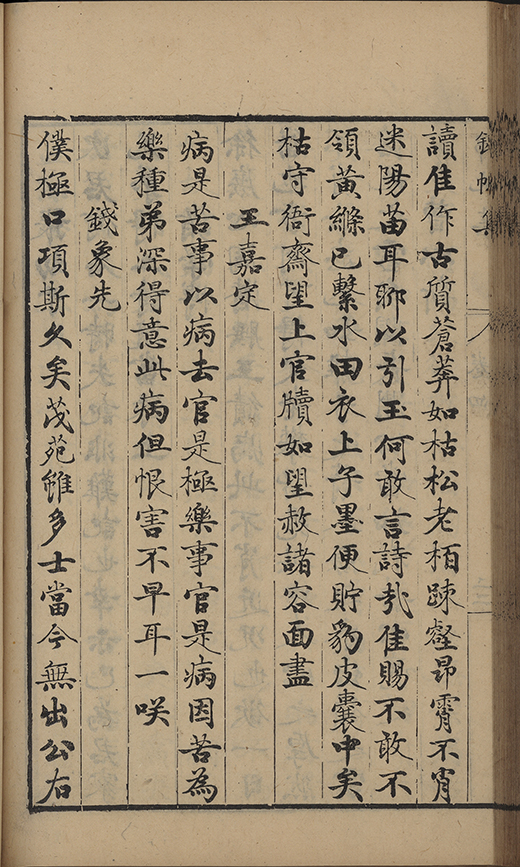 錦帆集
讀佳作古質蒼莽如枯松老栢踈壑昂霄不宵
迷陽苗耳聊以引玉何敢言詩扎佳賜不敢不
領黃縧已繫水田衣上子墨便貯豹皮囊中矣
枯守衙齋望上官牘如望赦諸容面盡
王嘉定
病是苦事以病去官是極樂事官是病因苦為
樂種弟深得意此病但恨害不早耳一咲
錢象先
僕極口項斯久矣茂苑雖多士當今無出公右